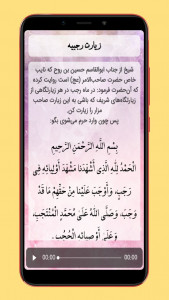 زیارت رجبیه
شیخ از جناب ابوالقاسم حسین بن روح که نایب
خاص حضرت صاحب‌الامر (عج) است روایت کرده
که آن‌حضرت فرمود: در ماه رجب در هر زیارتگاهی از
زیارتگاه‌های شریف که باشی به این زیارت صاحب
مزار را زیارت کن.
پس چون وارد حرم می‌شوی بگو:
بِسْمِ اللَّهِ الرَّحْمَنِ الرَّحِیمِ
الْحَمْدُ لِلَّهِ الَّذِی أَشْهَدَنَا مَشْهَدَ أَوْلِیَائِهِ فِی
رَجَبٍ، وَ أَوْجَبَ عَلَیْنَا مِنْ حَقِّهِمْ مَا قَدْ
وَجَبَ، وَ صَلَّى اللَّهُ عَلَى مُحَمَّدٍ الْمُنْتَجَبِ،
وَ عَلَى أَوْصِیَائِهِ الْحُجُبِ.
00:00 00:00